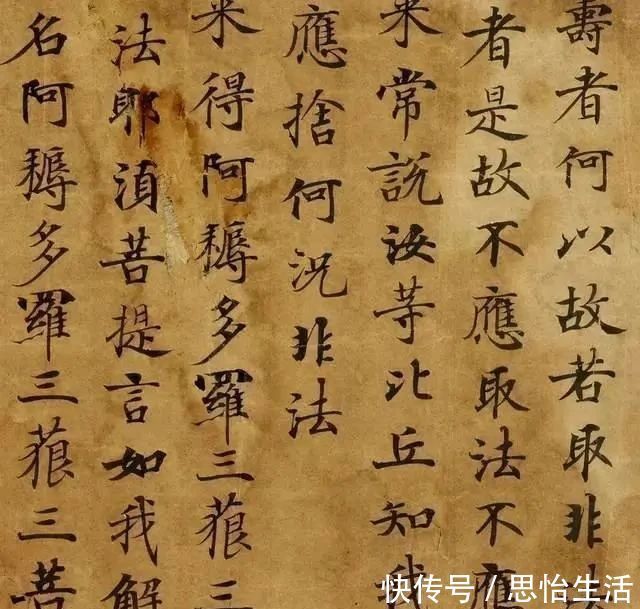 壽者何以故若取非
者是故不應取法不應
来常說汝等比丘知我
應捨何況非法
来得阿耨多羅三藐三
法耶湏菩提言如我解
名阿耨多羅三藐三菩
快传号/思怡生活